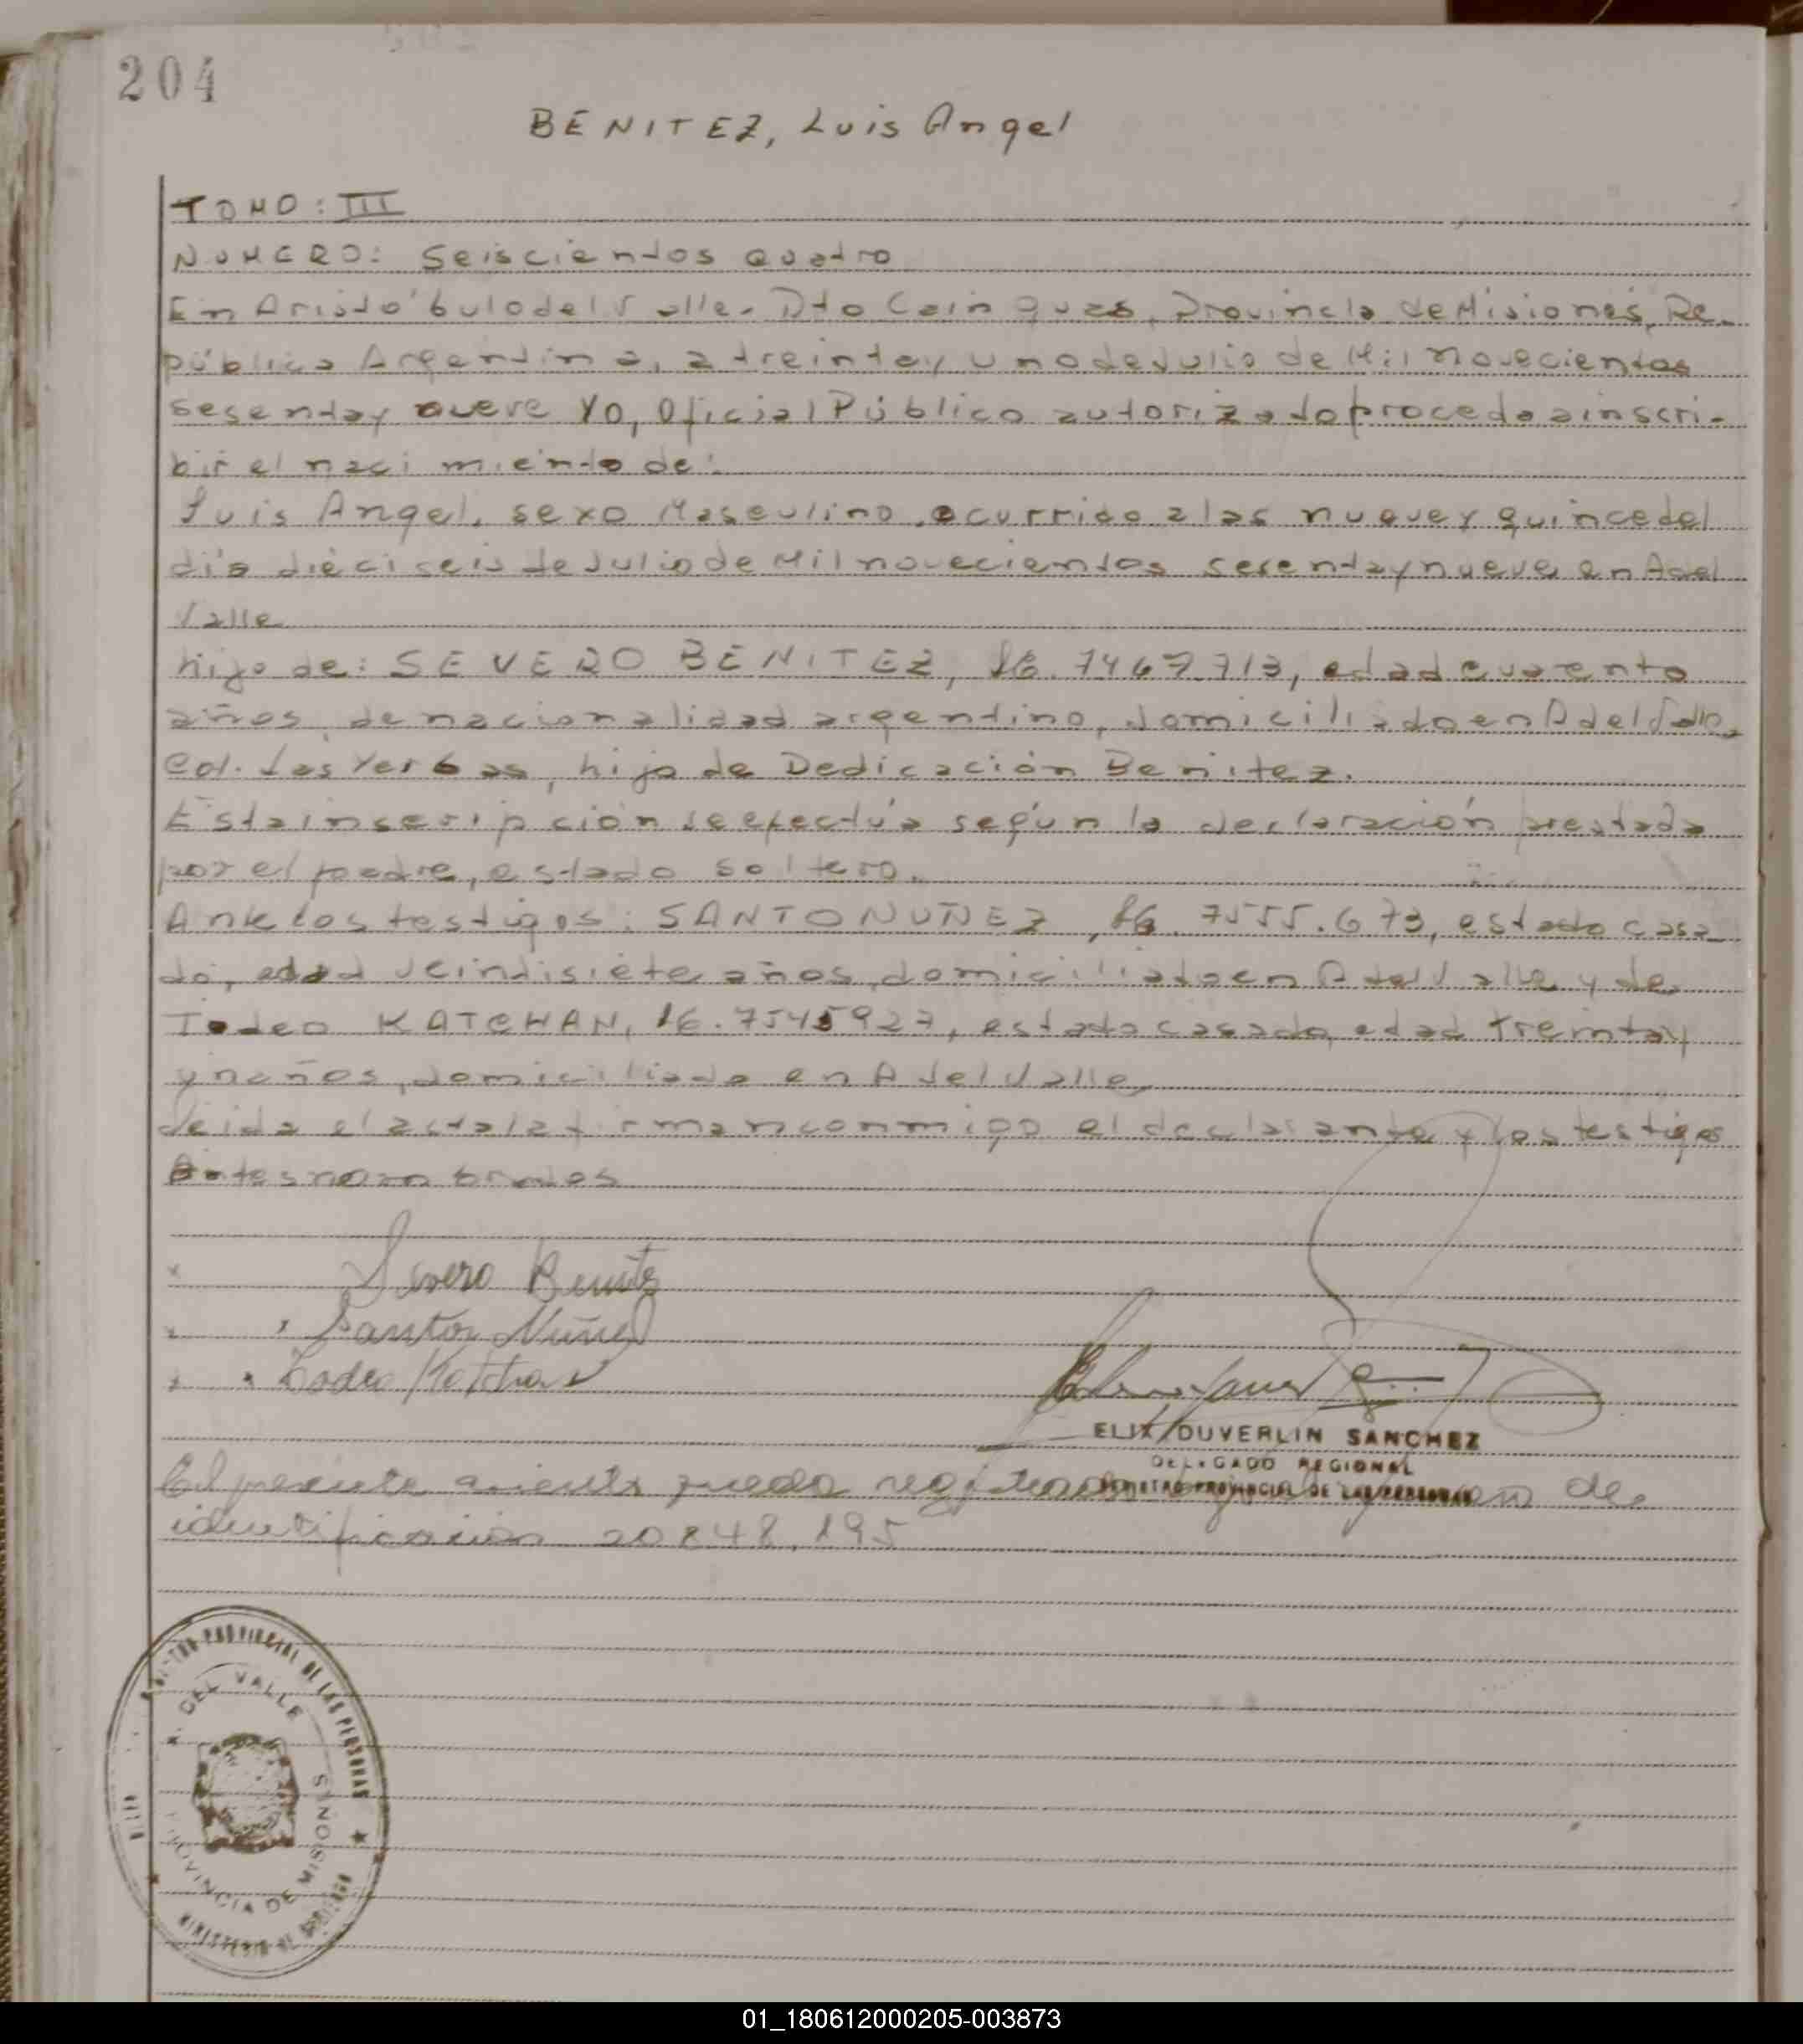 204
BENITEZ, Luis Angel
TOMO: III
NUMERO: Seiscientos cuatro
En Aristóbulo del Valle. Dto Cain guas, Provincia de Misiones, Re-
pública Argentina, a treinta y uno de Julio de Mil novecientos
sesenta y nueve Yo, Oficial Público autorizado procedo a inscri-
bir el nacimiento de:
Luis Angel, sexo Masculino, ocurrido a las nueve y quince del
día dieciseis de Julio de Mil novecientos sesenta y nueve en A del
Valle
hijo de: SEVERO BENITEZ, LE. 7467.713, edad cuarenta
años, de nacionalidad argentino, domiciliado en A del Valle,
Col. Las Yerbas, hijo de Dedicación Benitez.
Esta inscripción se efectúa según la declaración prestada
por el padre, estado soltero.
Ante los testigos: SANTO NUÑEZ, LE. 7555.673, estado casa-
do, edad veintisiete años, domiciliado en A del Valle y de
Todeo KATCHAN, LE. 7545927, estado casado, edad treinta y
un años, domiciliado en A del Valle,
Leida el acta la firman conmigo el declarante y los testigos
antes nombrados
x Severo Benitez
x Santos Nuñez
x Todeo Katchan
ELIX DUVERLIN SANCHEZ
DELEGADO REGIONAL
REGISTRO PROVINCIAL DE LAS PERSONAS
El presente asiento queda registrado de
identificación 20848.195
REGISTRO PROVINCIAL DE LAS PERSONAS
A. DEL VALLE
PROVINCIA DE MISIONES
MINISTERIO DE
01_180612000205-003873